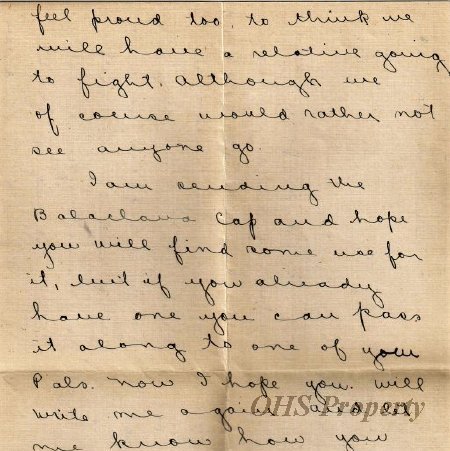 feel proud too, to think we
will have a relative going
to fight. Although we
of course would rather not
see anyone go.
I am sending the
Balaclava Cap and hope
you will find some use for
it, but if you already
have one you can pass
it along to one of your
Pals. Now I hope you. will
write me again and let
me know how you
OHS Property